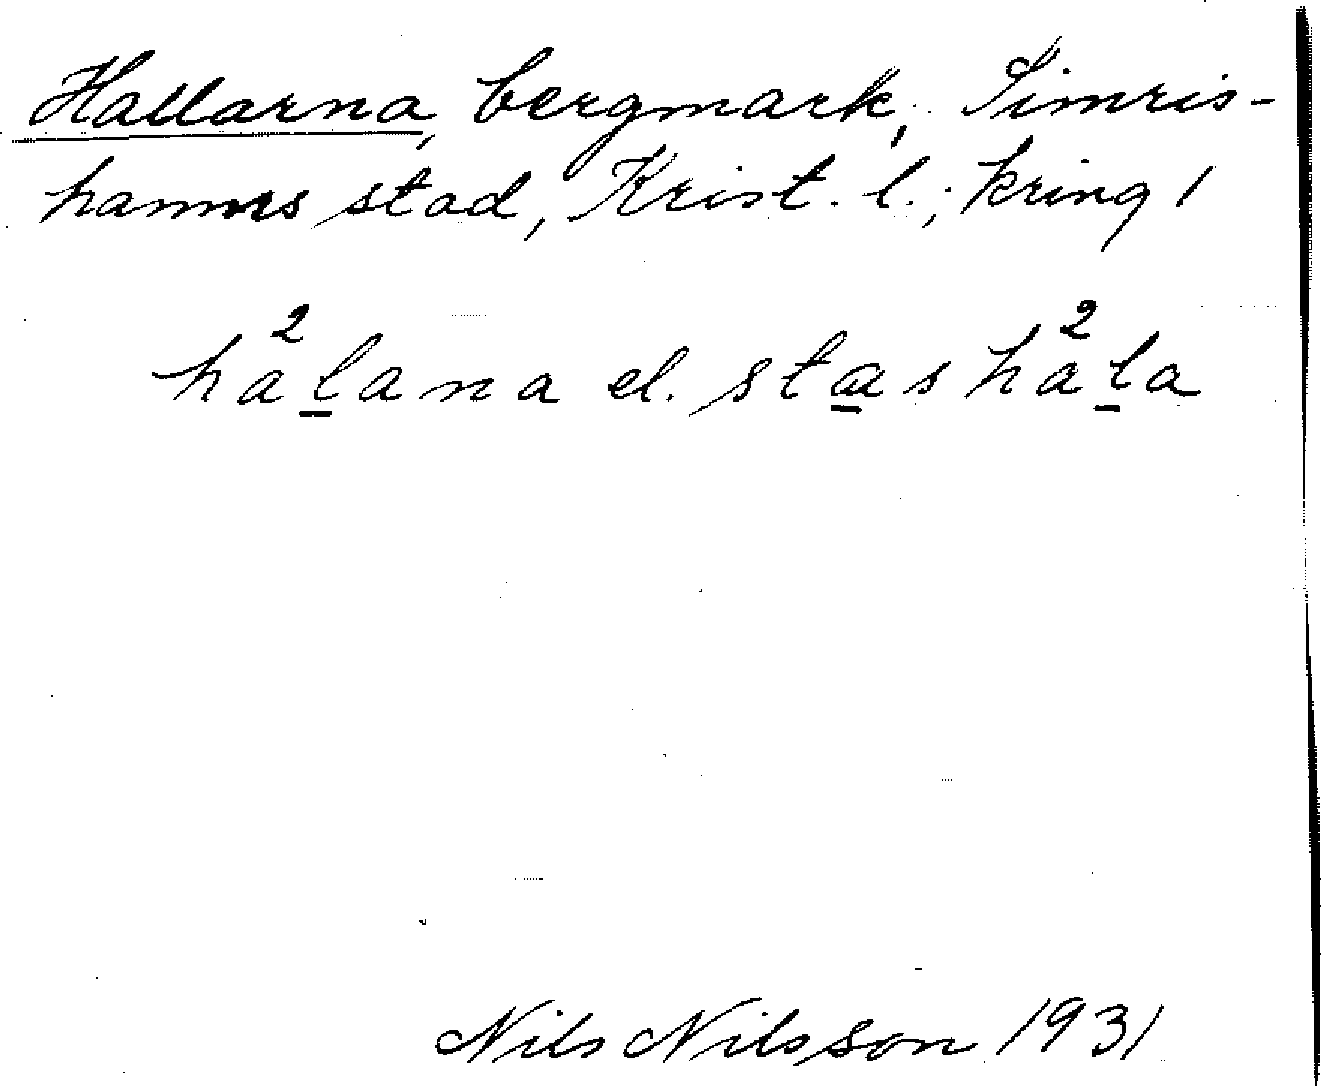 Hallarna, bergmark, Simris-
hamns stad, Krist. l.; kring 1
ha²l̲ana el. sta̲sha²l̲a
Nils Nilsson 1931